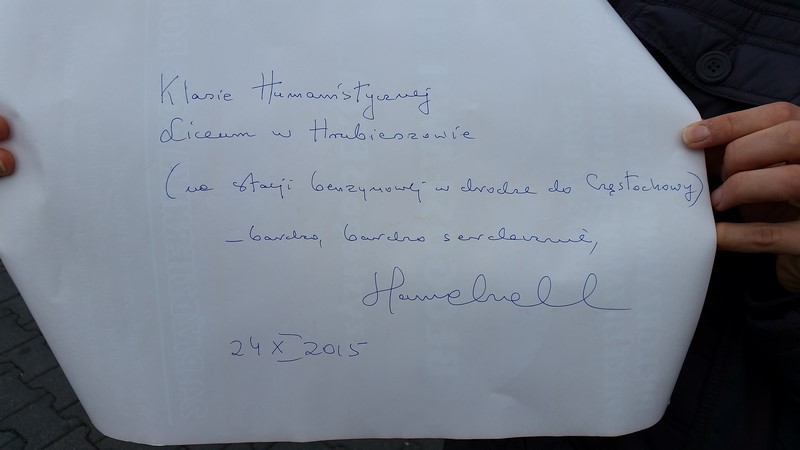 Klasie Humanistycznej
Liceum w Hrubieszowie
(na stacji benzynowej w drodze do Częstochowy)
– bardzo, bardzo serdecznie,
24 XI 2015